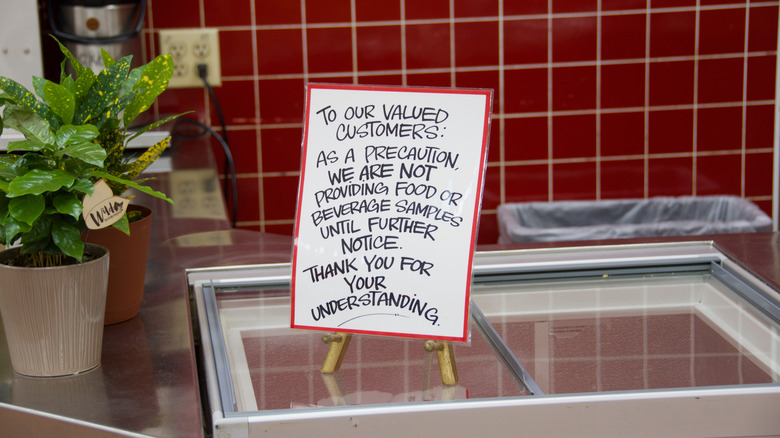 TO OUR VALUED
CUSTOMERS:
AS A PRECAUTION,
WE ARE NOT
PROVIDING FOOD OR
BEVERAGE SAMPLES
UNTIL FURTHER
NOTICE.
THANK YOU FOR
YOUR
UNDERSTANDING.
Wild